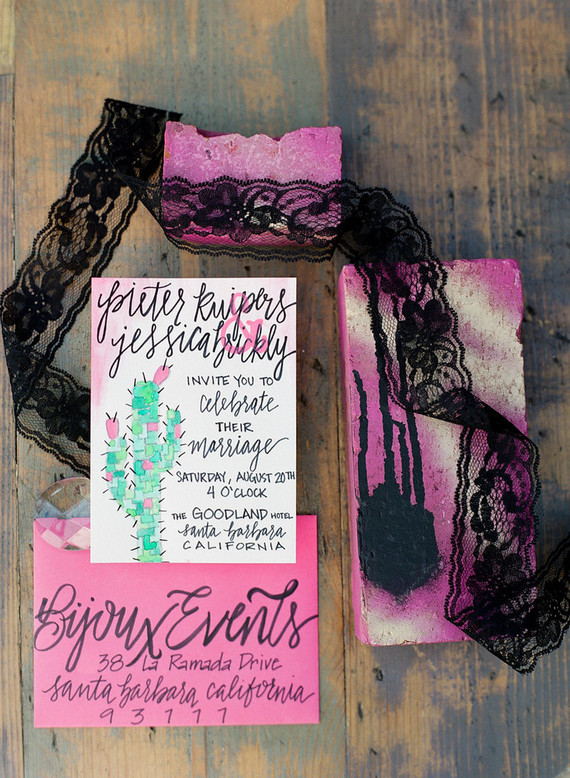 pieter kuipers
&
jessica buckly
INVITE YOU TO
celebrate
THEIR
marriage
SATURDAY, AUGUST 20TH
4 O'CLOCK
THE GOODLAND HOTEL
santa barbara
CALIFORNIA
Bijoux Events
38 La Ramada Drive
santa barbara california
93111